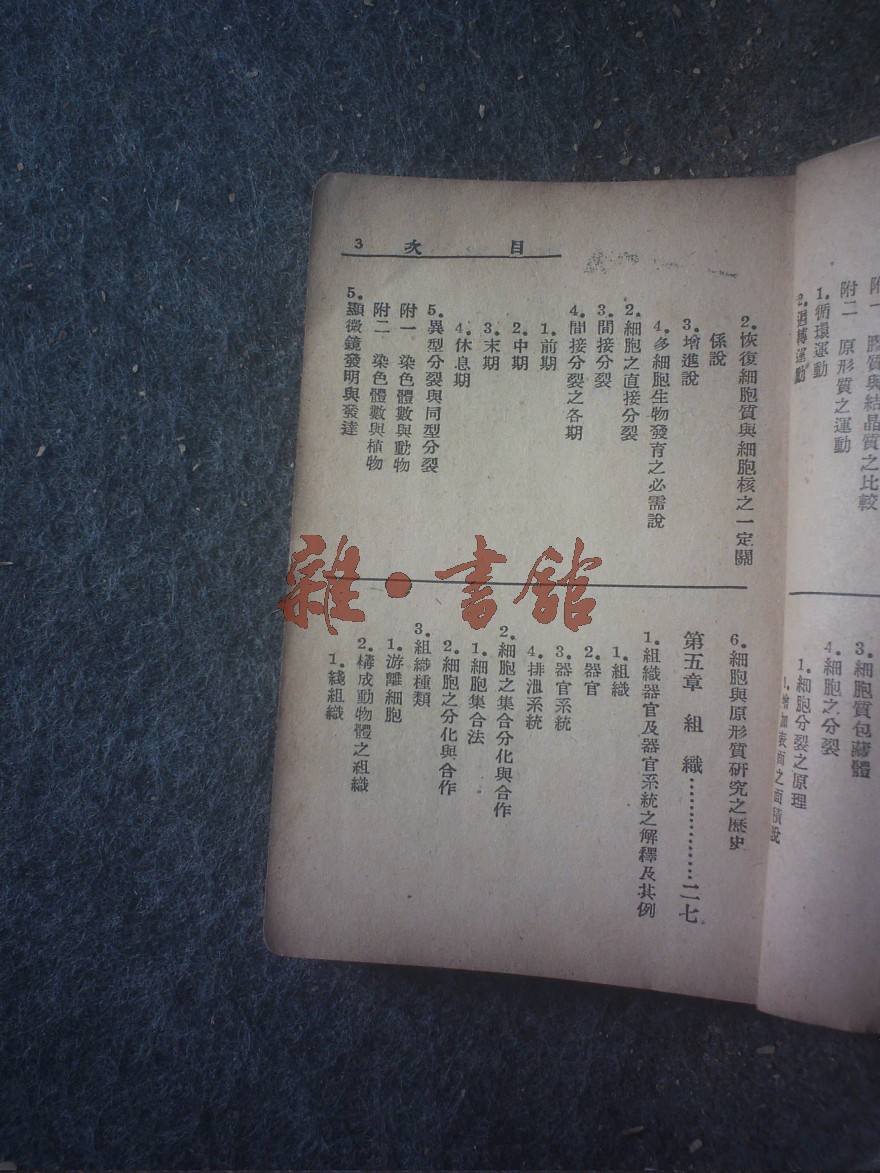 附一　膠質與結晶質之比較
附二　原形質之運動
1.循環運動
2.迴轉運動
3.細胞質包藏體
4.細胞之分裂
1.細胞分裂之原理
1.增加表面之面積說
目次　3
2.恢復細胞質與細胞核之一定關
係說
3.增進說
4.多細胞生物發育之必需說
2.細胞之直接分裂
3.間接分裂
4.間接分裂之各期
1.前期
2.中期
3.末期
4.休息期
5.異型分裂與同型分裂
附一　染色體數與動物
附二　染色體數與植物
5.顯微鏡發明與發達
6.細胞與原形質研究之歷史
第五章　組織………………二七
1.組織器官及器官系統之解釋及其例
1.組織
2.器官
3.器官系統
4.排泄系統
2.細胞之集合分化與合作
1.細胞集合法
2.細胞之分化與合作
3.組織種類
1.游離細胞
2.構成動物體之組織
1.綫組織
雜·書館